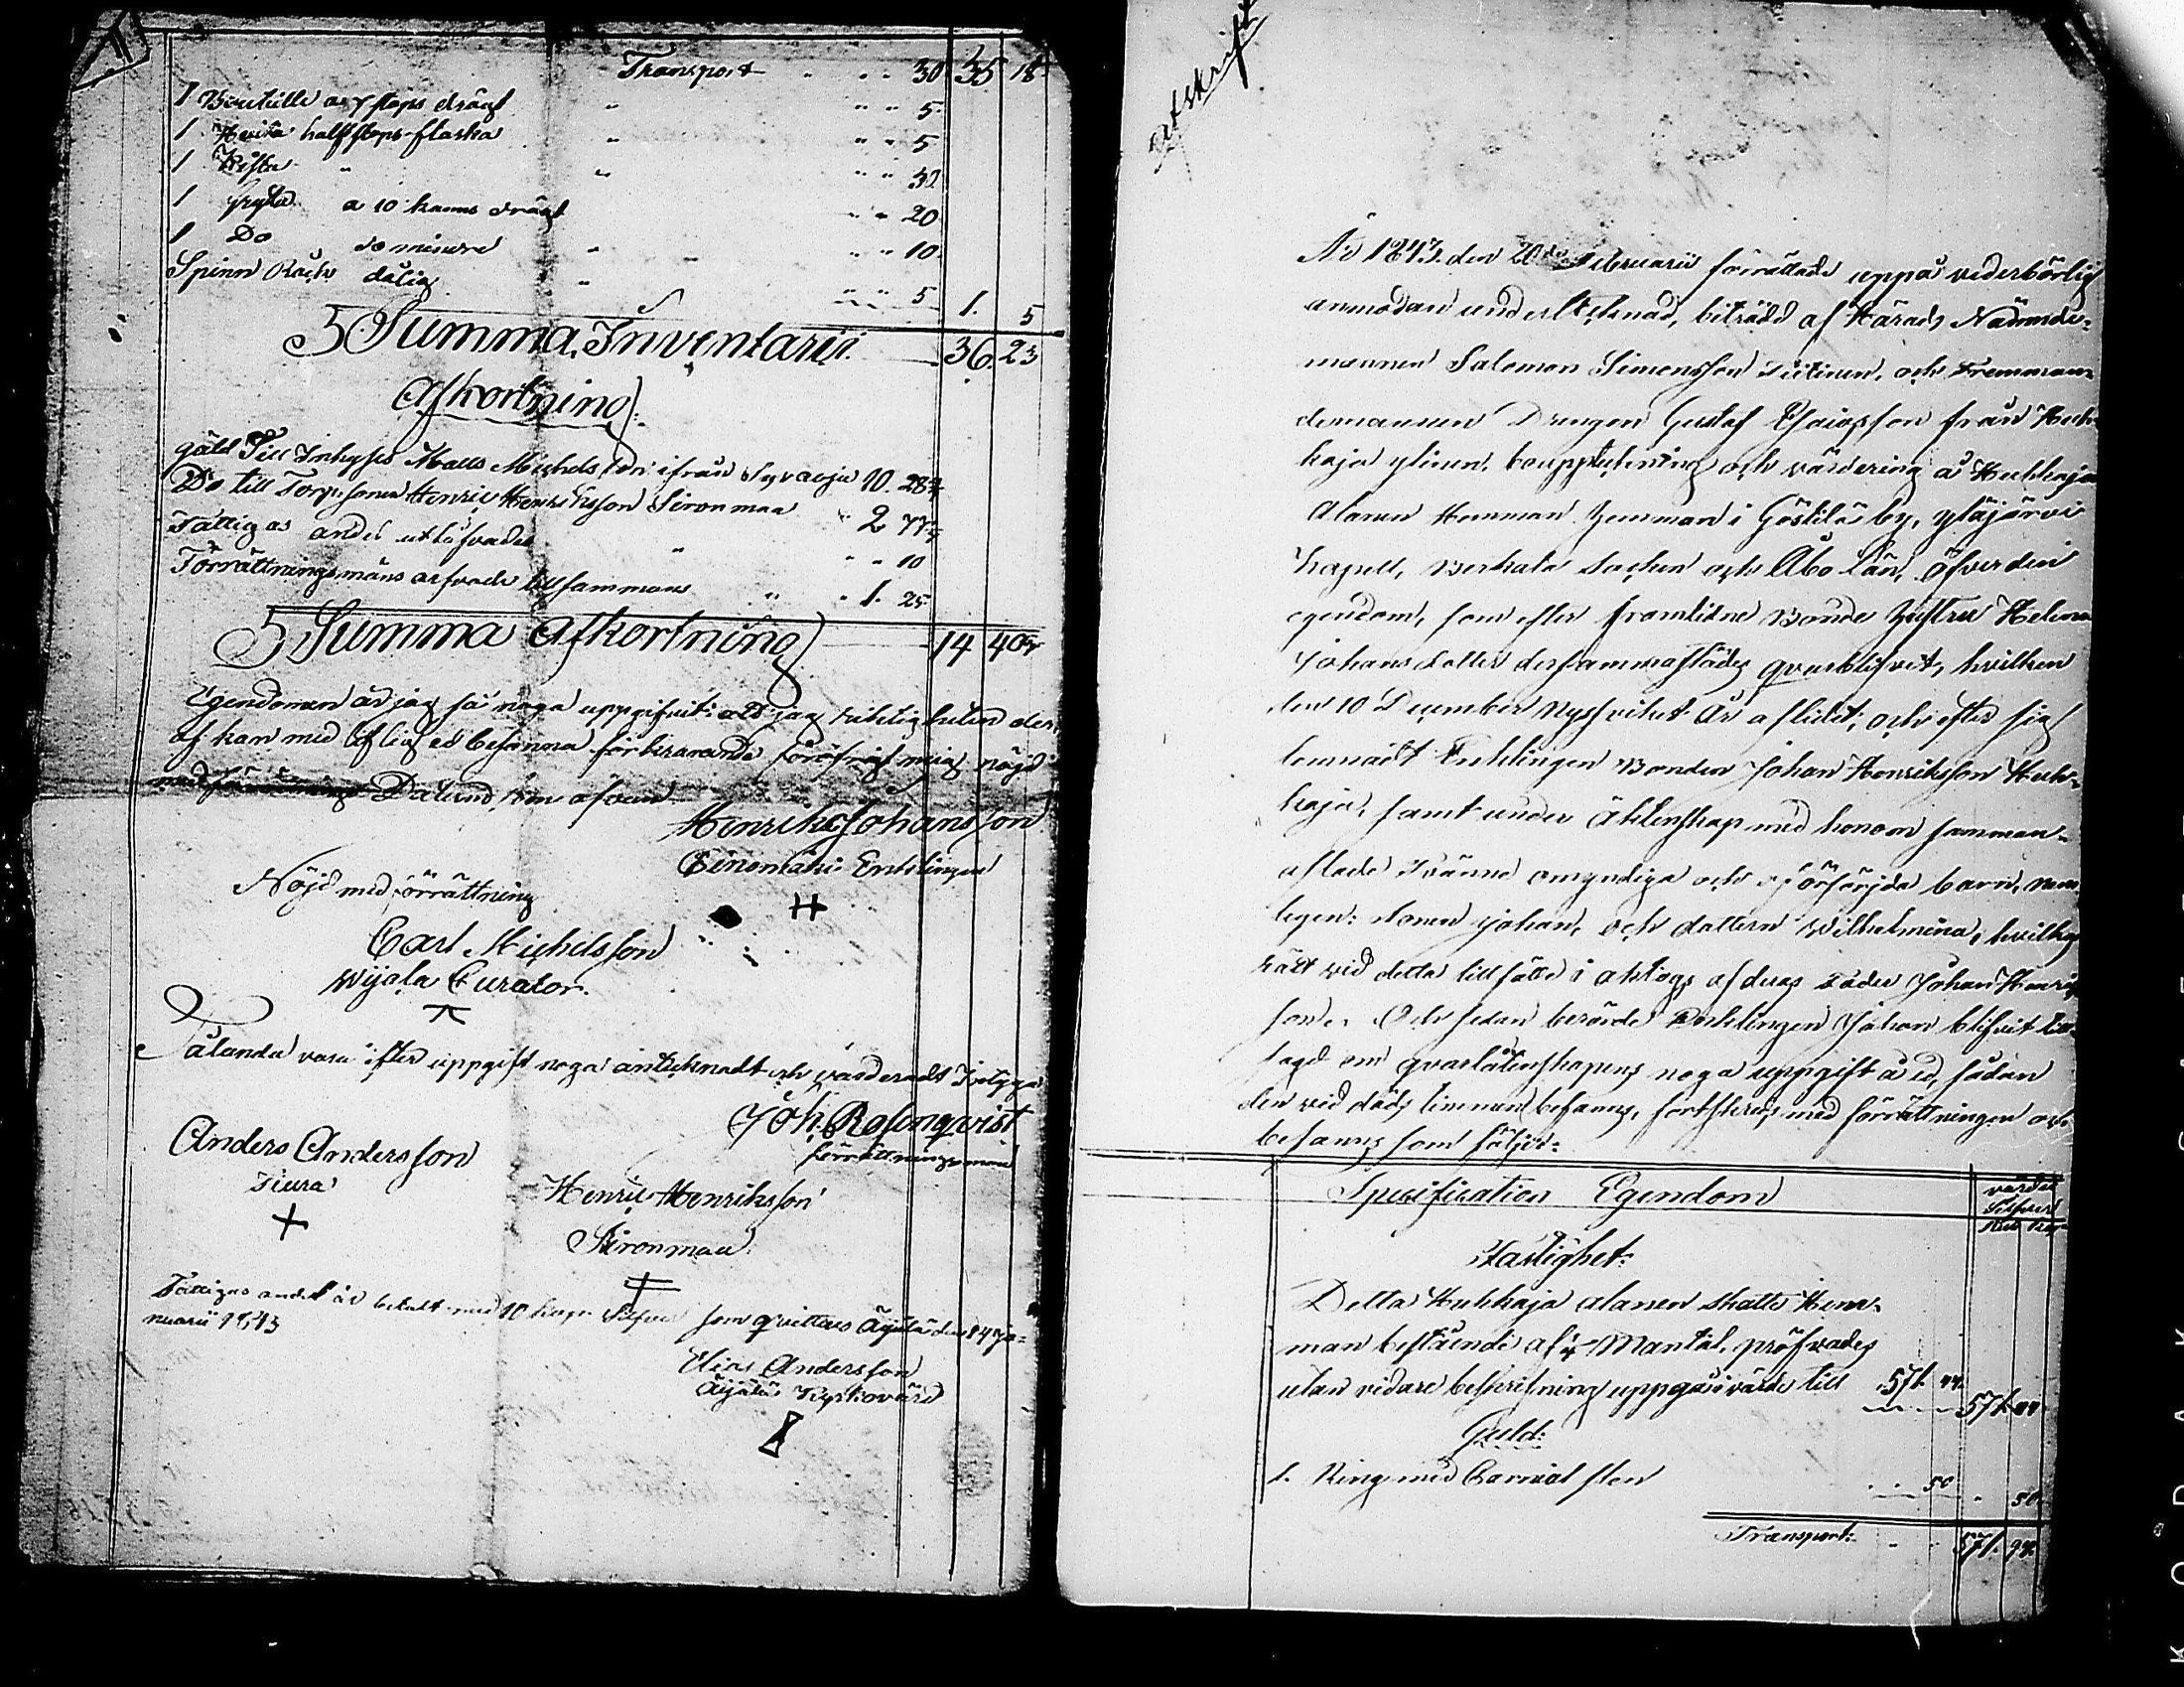 Transport 30 35 18
1 Bouteille a 7 stops drägt 5.
1 Hvita half stops flaska 5
1 Kista 30
1 gryta a 10 kanns drägt 20
1 Do do mindre 10.
Spinn Råck dålig 5 1. 5
Summa Inventarii 36. 23
Afkortning:
gäld Till Inhyses Matts Michelsson ifrån 10. 28
Do till Torp sonen Henric Henriksson Sironmaa 2 77
Fattigas andel utlofvades 10
Förrättningsmäns arfvode till sammans 1. 25
Summa Afkortning 14 40
Egendomen är jag så noga uppgifvit: att jag riktigheten der
af kan med liflig ed besanna förklarande föröfrigt mig nöjd
med
Henrik Johansson
Beinomäki Enklingen
Nöjd med förrättning
Carl Michelsson
Wijala Curator.
Sålunda vara efter uppgift noga antecknadt och värderadt Intyga
Joh. Rosenqvist
förrättningsman
Anders Andersson
Henric Henriksson
Sironmaa
Fattigas andel är betalt med 10 kop. Silfver som qvitteras Äijälä den 24 Ja=
nuarii 1843
Elias Andersson
Äijälä Kyrkovärd
Afskrift
År 1843 den 20de Februarii förrättade uppå vederbörlig
anmodan undertecknad, biträdd af Härads Nämnde=
mannen Salomon Simonsson och Fremman=
demannen Drengen Gustaf Esaiasson från Huh
kaja ylinen, bouppteckning och värdering å Huhkaja
Alanen Hemman i Göstilä by, ylöjärvi
Kapell, Birkala Sochen och Åbo Län, öfver den
egendom, som efter framlidne Bonde hustru Helena
Johans dotter dersammastädes qvarblifvit, hvilken
den 10 December nyssvikit år aflidit; och efter sig
lemnadt Enklingen Bonden Johan Henriksson Huh=
kaja, samt under äktenskap med honom samman=
aflade tvänne omyndiga och oförsörjda barn, nem
ligen: sonen Johan, och dottern Wilhelmina, hvilkas
rätt vid detta tillfälle i akttogs af deras Fader Johan Henriks
son. Och sedan berörde Enklingen Johan blifvit till
sagd om qvarlåtenskapens noga uppgift å ed, sådan
den vid döds timman befanns, fortsattes med förrättningen och
befanns som följer:
Specification Egendom
värdet
Silfver
Rub. kop.
Fastighet:
Detta Huhkaja alanen skatte Hem=
man bestående af 1/4 Mantal, pröfvades
utan vidare beskrifning uppgå i värde till 571. 44. 571. 44
Guld:
1. Ring med Carniol sten 50 50.
Transport: 571. 94.